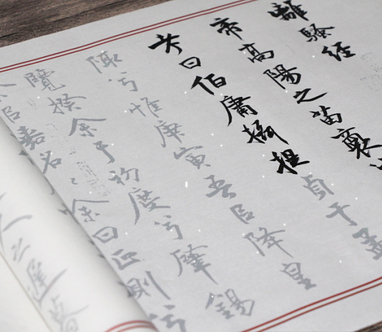 離騷經
帝高陽之苗裔
考曰伯庸攝提貞于孟
陬兮惟庚寅吾㠯降皇
覽揆余于初度兮肇錫
㠯嘉名々余曰正則兮
之遲暮